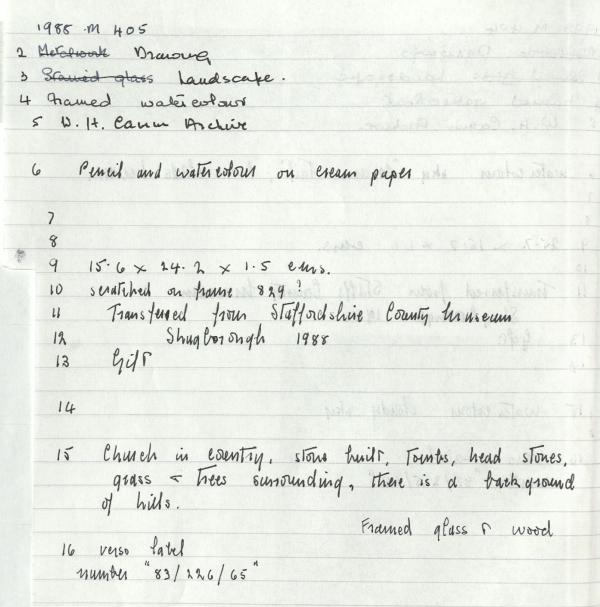 1988 .M 405
2 Metalwork Drawing
3 Stained glass Landscape.
4 Framed watercolour
5 W. H. Cann Archive
6 Pencil and watercolour on cream paper
7
8
9 15.6 x 24.2 x 1.5 cms.
10 scratched on frame 829?
11 Transferred from Staffordshire County Museum
12 Shugborough 1988
13 Gift
14
15 Church in country, stone built, Tombs, head stones,
grass & Trees surrounding, there is a background
of hills.
Framed glass & wood
16 verso label
number "83/226/65"